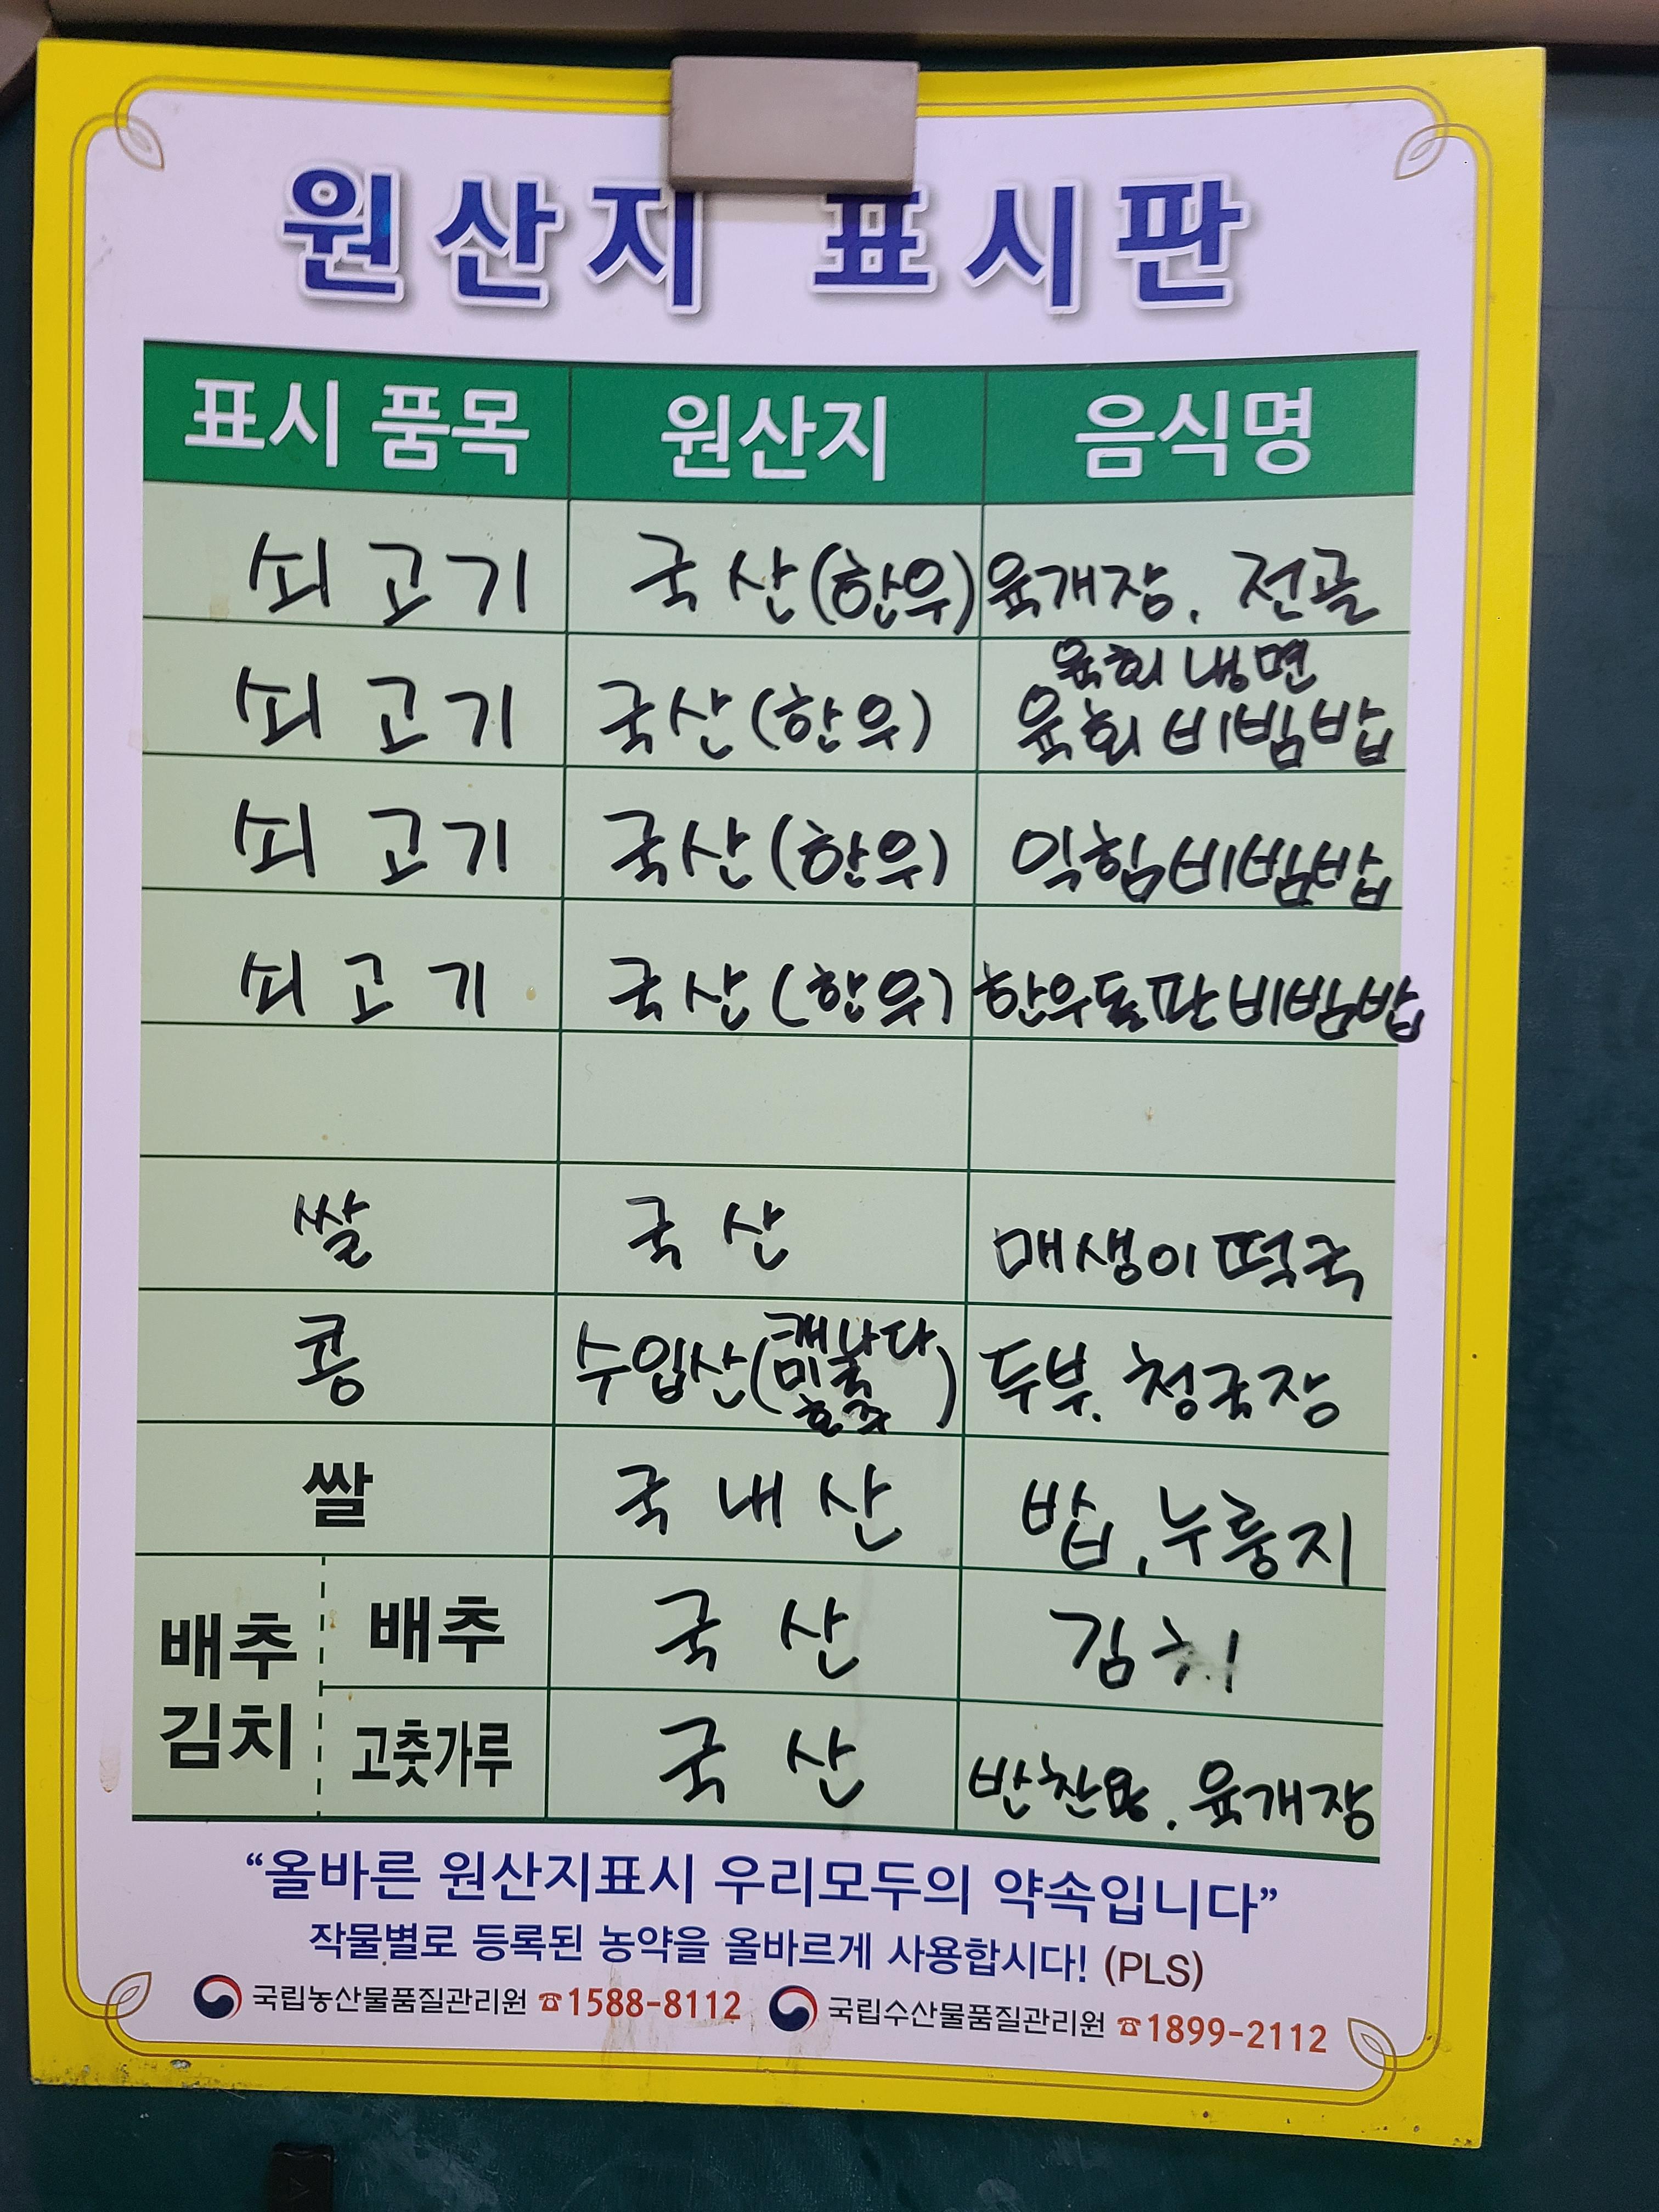 원산지 표시판
표시 품목 원산지 음식명
쇠고기 국산(한우) 육개장, 전골
육회냉면
쇠고기 국산(한우) 육회비빔밥
쇠고기 국산(한우) 익힘비빔밥
쇠고기 국산(한우) 한우돌판비빔밥
쌀 국산 매생이떡국
콩 수입산(캐나다 미국 호주) 두부, 청국장
쌀 국내산 밥, 누룽지
배추김치 배추 국산 김치
고춧가루 국산 반찬용, 육개장
“올바른 원산지표시 우리모두의 약속입니다”
작물별로 등록된 농약을 올바르게 사용합시다! (PLS)
국립농산물품질관리원 ☎1588-8112 국립수산물품질관리원 ☎1899-2112